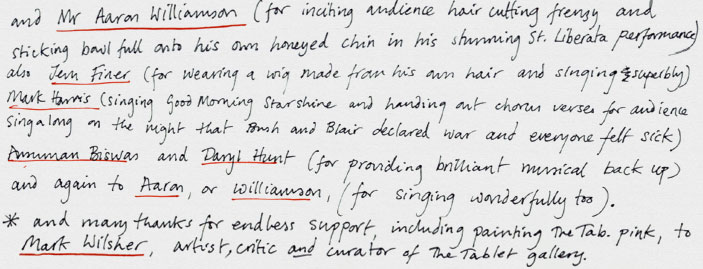 and Mr Aaron Williamson (for inciting audience hair cutting frenzy and
sticking bowl full onto his own honeyed chin in his stunning St. Liberata performance)
also Jem Finer (for wearing a wig made from his own hair and singing superbly)
Mark Harris (singing Good Morning Starshine and handing out chorus verses for audience
singalong on the night that Bush and Blair declared war and everyone felt sick)
Ansuman Biswas and Daryl Hunt (for providing brilliant musical back up)
and again to Aaron, or Williamson, (for singing wonderfully too).
* and many thanks for endless support, including painting The Tab. pink, to
Mark Wilsher, artist, critic and curator of The Tablet gallery.